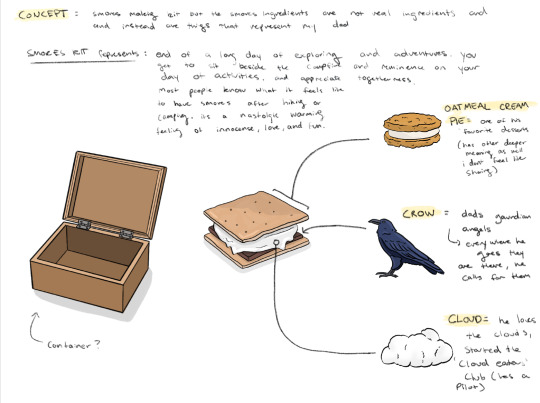 CONCEPT: smores making kit but the smores ingredients are not real ingredients and
and instead are things that represent my dad
SMORES KIT represents: end of a long day of exploring and adventures. you
get to sit beside the campfire and reminence on your
day of activities, and appreciate togetherness
most people know what it feels like
to have smores after hiking or
camping. its a nostalgic warming
feeling of innocense, love, and fun.
OATMEAL CREAM
PIE: one of his
favorite desserts
(has other deeper
meaning as well
i dont feel like
sharing)
CROW = dads gaurdian
angels
everywhere he
goes they
are there, he
calls for them
CLOUD = he loves
the clouds,
started the
"cloud eaters"
club (has a
pilot)
container?